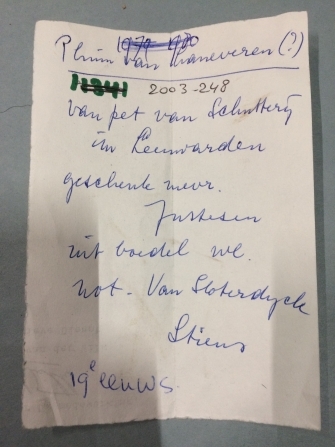 1970 1980
Pluim van Haneveren (?)
11841 2003-248
van pet van Schutterij
in Leeuwarden
geschenk mevr.
Justesen
uit boedel wl.
not. Van Sloterdyck
Stiens
19e eeuws.